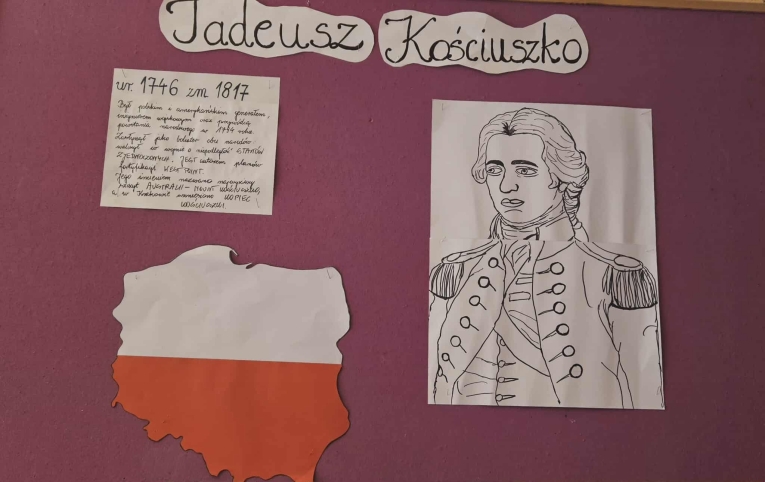 Tadeusz Kościuszko
ur. 1746 zm 1817
Był polskim i amerykańskim generałem,
inżynierem wojskowym oraz
powstania narodowego w 1794 roku.
Zasłynął jako bohater obu narodów
walczył o niepodległość STANÓW
ZJEDNOCZONYCH. JEST autorem planów
fortyfikacji WEST POINT.
Jego imieniem nazwano najwyższy
szczyt AUSTRALII - MOUNT
a w Krakowie KOPIEC